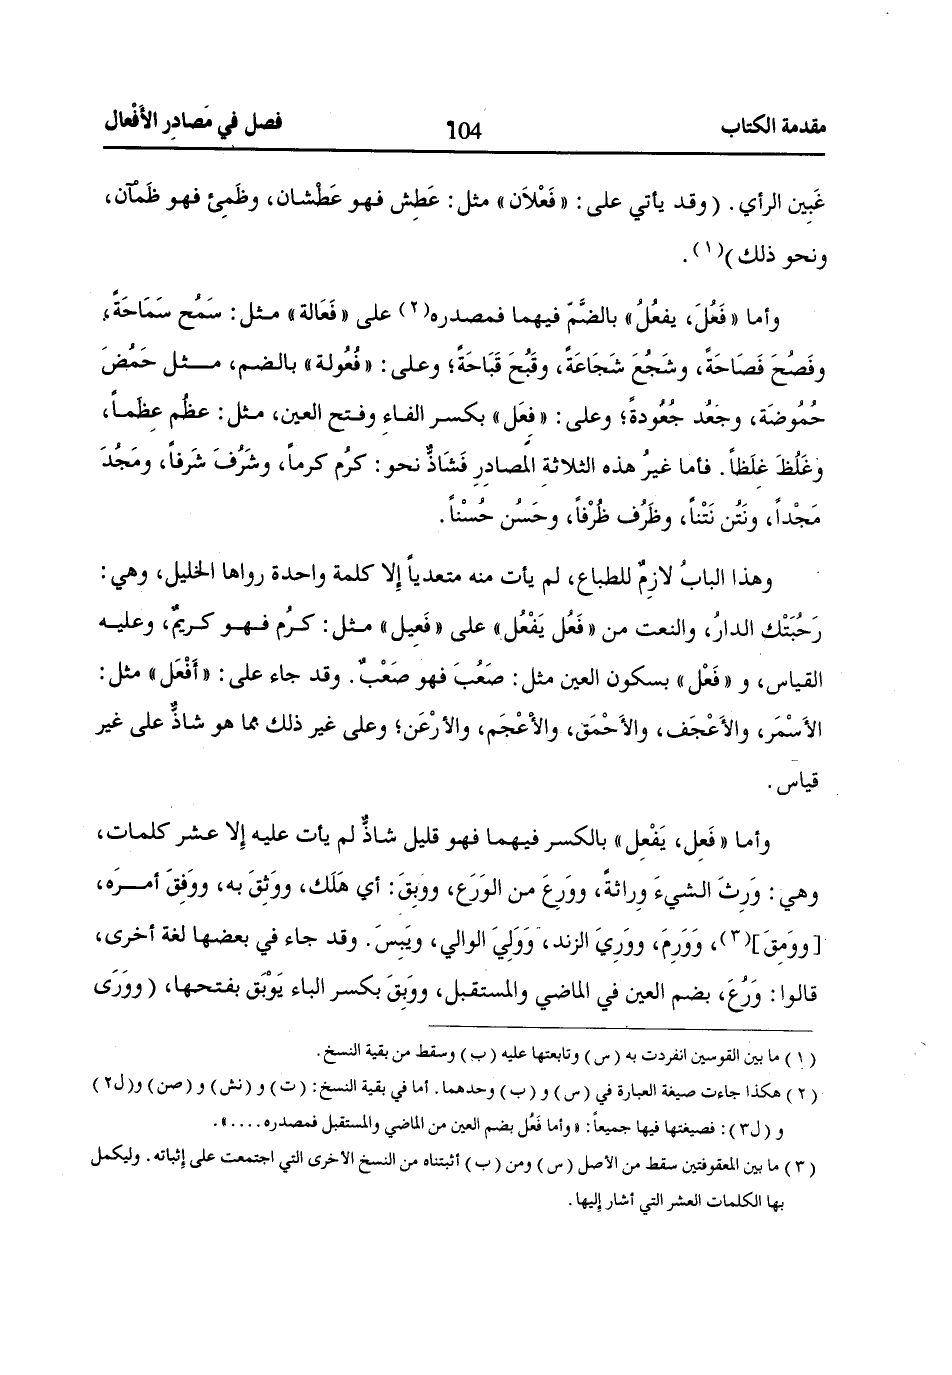 مقدمة الكتاب
104
فصل في مَصادِر الأَفْعال
غَبِين الرأي. (وقد يأتي على: «فَعْلاَن» مثل: عَطِش فهو عَطْشان، وظَمِئ فهو ظَمْآن،
ونحو ذلك)(١).
وأما «فَعُلَ، يفعُلُ» بالضَّمّ فيهما فمصدره(٢) على «فَعَالة» مثل: سَمُح سَمَاحَةً؛
وفَصُحَ فَصَاحَةً، وشَجُعَ شَجَاعَةً، وقَبُحَ قَبَاحَةً؛ وعلى: «فُعُولة» بالضم، مثل حَمُضَ
حُمُوضَة، وجَعُد جُعُودةً؛ وعلى: «فِعَل» بكسر الفاء وفتح العين، مثل: عظُم عِظَماً،
وغَلُظَ غِلَظاً. فأما غيرُ هذه الثلاثةِ المَصادِرِ فَشَاذٌّ نحو: كرُم كرماً، وشَرُفَ شَرفاً، ومَجُدَ
مَجْداً، ونَتُن نَتْناً، وظَرُف ظُرْفاً، وحَسُن حُسْناً.
وهذا البابُ لازِمٌ للطباع، لم يأت منه متعدياً إلا كلمة واحدة رواها الخليل، وهي:
رَحُبَتْك الدارُ، والنعت من «فَعُل يَفْعُل» على «فَعِيل» مثل: كرُم فهو كريمٌ، وعليه
القياس، و «فَعْل» بسكون العين مثل: صَعُبَ فهو صَعْبٌ. وقد جاء على: «أَفْعَل» مثل:
الأَسْمَر، والأَعْجَف، والأَحْمَق، والأَعْجَم، والأَرْعَن؛ وعلى غير ذلك مما هو شاذٌّ على غير
قياس.
وأما «فَعِل، يَفْعِل» بالكسر فيهما فهو قليل شاذٌّ لم يأت عليه إلا عشر كلمات،
وهي: وَرِثَ الشيءَ وِراثةً، ووَرِعَ من الوَرَع، ووَبِقَ: أي هَلَك، ووَثِقَ به، ووَفِقَ أمرَه،
[ووَمِقَ](٣)، وَوَرِمَ، ووَرِيَ الزند، وَوَلِيَ الوالي، ويَبِسَ. وقد جاء في بعضها لغة أخرى،
قالوا: وَرُعَ، بضم العين في الماضي والمستقبل، ووَبِقَ بكسر الباء يَوْبَق بفتحها، (ووَرَى
(١) ما بين القوسين انفردت به (س) وتابعتها عليه (ب) وسقط من بقية النسخ.
(٢) هكذا جاءت صيغة العبارة في (س) و(ب) وحدهما. أما في بقية النسخ: (ت) و(نش) و(صن) و(ل٢)
و(ل٣): فصيغتها فيها جميعاً: «وأما فَعُل بضم العين من الماضي والمستقبل فمصدره....».
(٣) ما بين المعقوفتين سقط من الأصل (س) ومن (ب) أثبتناه من النسخ الأخرى التي اجتمعت على إثباته. وليكمل
بها الكلمات العشر التي أشار إليها.